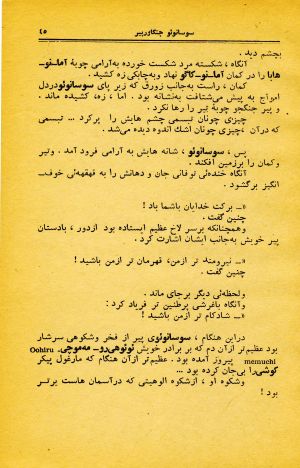 سوسانوئو جنگاورپیر
۴۵
بچشم دید .
آنگاه ، شکسته مرد شکست خورده به‌آرامی چوبهٔ آما_نو_
هابا را در کمان آما_نو_کاگو نهاد وبه‌چابکی زه کشید .
کمان ، راست به‌جانب زورق که زیر پای سوسانوئودردل
امواج به پیش می‌شتافت به‌نشانه بود . اما ، زه کشیده ماند .
پیر جنگجو چوبهٔ تیر را رها نکرد .
چیزی چونان تبسمی چشم هایش را پرکرد ... تبسمی
که درآن ،چیزی چونان اشك اندوه دیده می‌شد .
پس ، سوسانوئو ، شانه هایش به آرامی فرود آمد . وتیر
وکمان را برزمین افکند .
آنگاه خنده‌ئی توفانی جان و دهانش را به فهقهه‌ئی خوف_
انگیز برگشود .
ـ برکت خدایان باشما باد !
چنین گفت .
وهمچنانکه برسر لاخ عظیم ایستاده بود ازدور ، بادستان
پیر خویش به‌جانب ایشان اشارت کرد .
ـ نیرومند تر ازمن، قهرمان تر ازمن باشید !
چنین گفت .
ولحظه‌ئی دیگر برجای ماند .
وآنگاه باغرشی پرطنین تر فریاد کرد :
ـ شادکام تر ازمن باشید !
دراین هنگام ، سوسانوئوی پیر از فخر وشکوهی سرشار
بود عظیم‌تر ازآن دم که بر برادر خویش ئوئوهی‌رو_ مه‌موچی_ Oohiru
memuchi پیروز آمده بود . عظیم‌تر ازآن هنگام که مارغول پیکر
کوشی‌را بی‌جان کرده بود ...
وشکوه او ، ازشکوه الوهیتی که درآسمان هاست برتر
بود !